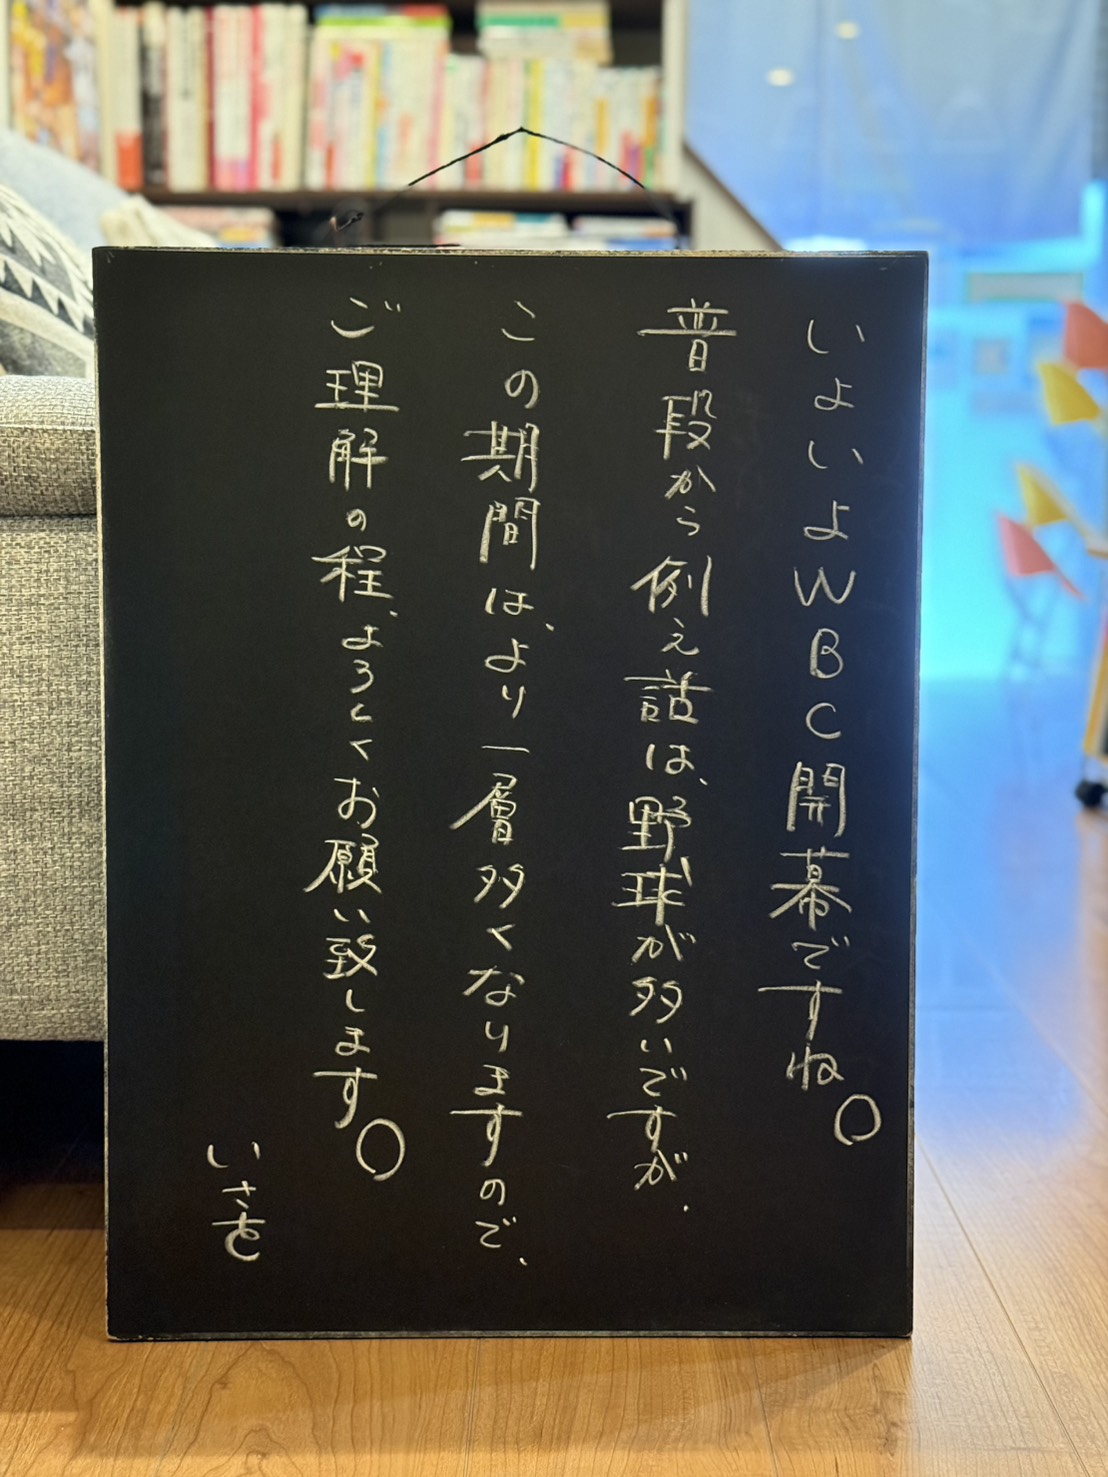 いよいよWBC開幕ですね。
普段から例え話は、野球が多いですが、
この期間は、より一層多くなりますので、
ご理解の程、よろしくお願い致します。
いさを